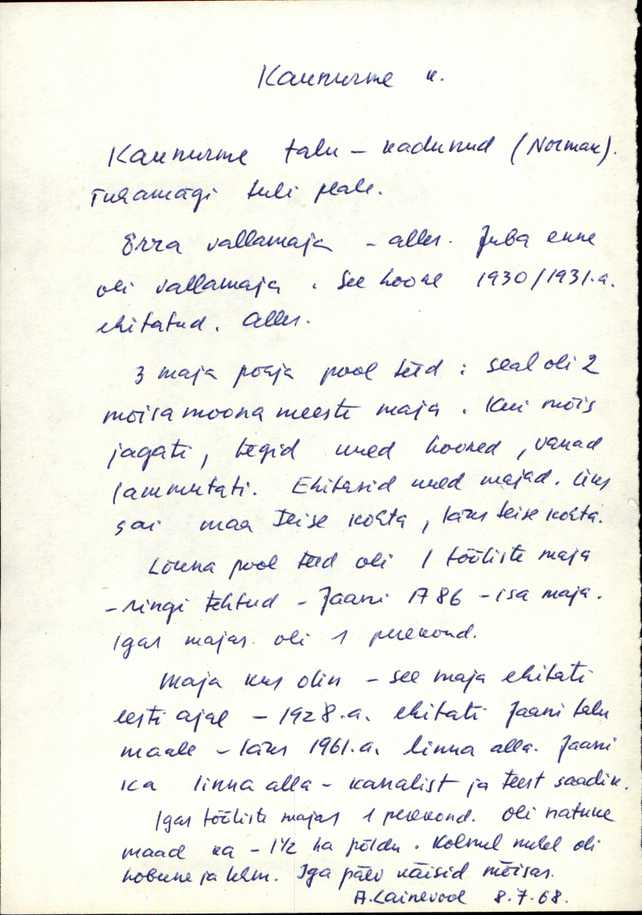 Kaunurme k.
Kaunurme talu – kadunud (Norman).
Tuhamägi tuli peale.
Erra vallamaja – alles. Juba enne
oli vallamaja. See hoone 1930/1931.a.
ehitatud. Alles.
3 maja põhja pool teed: seal oli 2
mõisa moona meeste maja. Kui mõis
jagati, tegid uued hooned, vanad
lammutati. Ehitasid uued majad. Üks
sai maa teise kohta, läks teise kohta.
Lõuna pool teed oli 1 tööliste maja
– ringi tehtud – Jaani A 86 – isa maja.
Igas majas oli 1 perekond.
Maja kus olin – see maja ehitati
eesti ajal – 1928.a. ehitati Jaani talu
maale – läks 1961.a. linna alla. Jaani
ka linna alla – kanalist ja teest saadik.
Igas tööliste majas 1 perekond. Oli natuke
maad ka – 1½ ha põldu. Kolmel mehel oli
hobune ja lehm. Iga päev käisid mõisas.
A. Lainevool 8.7.68.